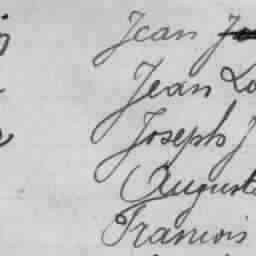 Jean
Jean Lo
Joseph J
Auguste
Francois